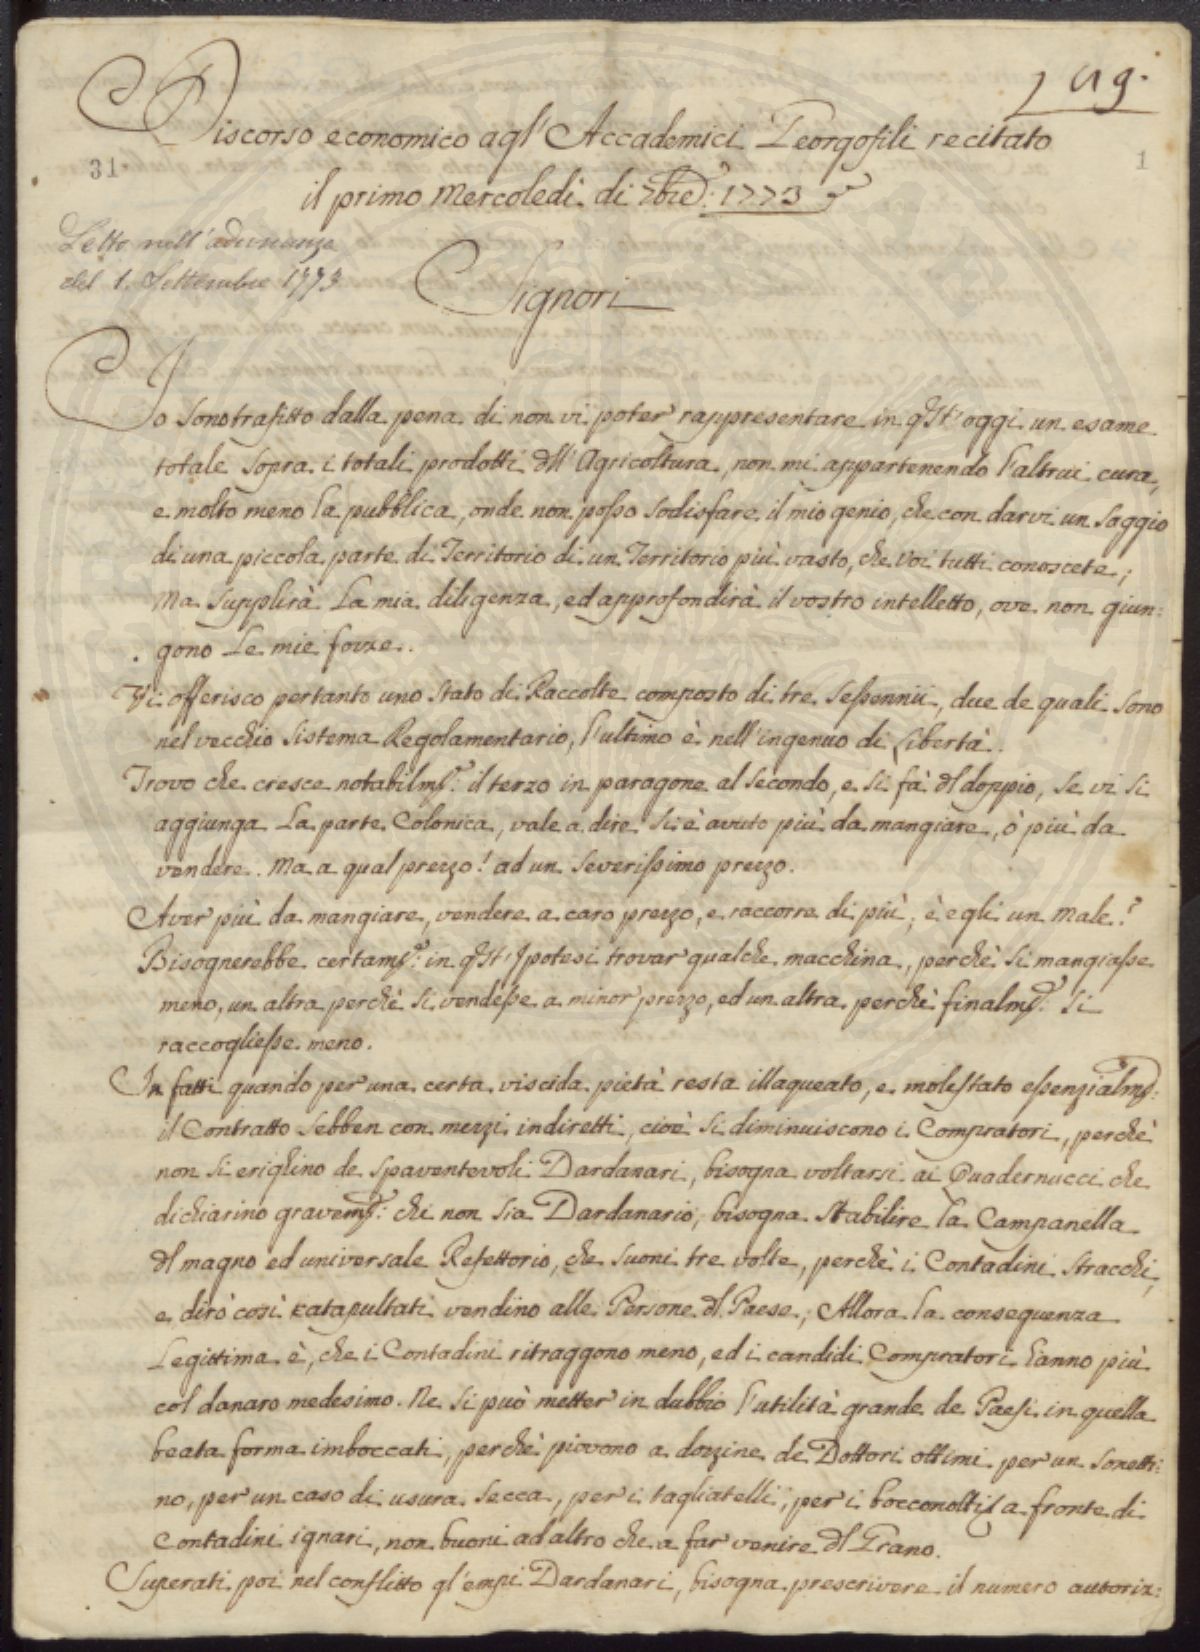 119.
Discorso economico agl' Accademici Georgofili recitato
31.
1
il primo Mercoledi di 7bre: 1773
Letto nell'adunanza
del 1. Settembre 1773
Signori
Io sono trafitto dalla pena di non vi poter rappresentare in qst' oggi un esame
totale sopra i totali prodotti dll' Agricoltura, non mi appartenendo l'altrui cura,
e molto meno la pubblica, onde non posso sodisfare il mio genio, che con darvi un saggio
di una piccola parte di Territorio di un Territorio più vasto, che voi tutti conoscete;
Ma supplirà la mia diligenza, ed approfondirà il vostro intelletto, ove non giun:
gono le mie forze.
Vi offerisco pertanto uno stato di Raccolte composto di tre sessennii, due de quali sono
nel vecchio sistema Regolamentario, l'ultimo è nell'ingenuo di Libertà.
Trovo che cresce notabilmte: il terzo in paragone al secondo, e si fà dl doppio, se vi si
aggiunga la parte Colonica, vale a dire si è avuto più da mangiare, ò più da
vendere. Ma a qual prezzo! ad un severissimo prezzo.
Aver più da mangiare, vendere a caro prezzo, e raccorre di più, è egli un male?
Bisognerebbe certamte: in qst' Ipotesi trovar qualche macchina, perchè si mangiasse
meno, un altra perchè si vendesse a minor prezzo, ed un altra perchè finalmte: si
raccogliesse meno.
In fatti quando per una certa viscida pietà resta illaqueato, e molestato essenzialmte:
il Contratto sebben con mezzi indiretti, cioè si diminuiscono i Compratori, perchè
non si erighino de spaventevoli Dardanari, bisogna voltarsi ai Quadernucci che
dichiarino gravemte: chi non sia Dardanario, bisogna stabilire la Campanella
dl magno ed universale Refettorio, che suoni tre volte, perchè i Contadini stracchi,
e dirò così catapultati vendino alle Persone dl Paese; Allora la conseguenza
legittima è, che i Contadini ritraggono meno, ed i candidi Compratori hanno più
col danaro medesimo. Ne si può metter in dubbio l'utilità grande de Paesi in quella
beata forma imboccati, perchè piovono a dozzine de Dottori ottimi per un sonetti:
no, per un caso di usura secca, per i tagliatelli, per i a fronte di
Contadini ignari, non buoni ad altro che a far venire dl Grano.
Superati poi nel conflitto gl'empi Dardanari, bisogna prescrivere il numero autoriz: